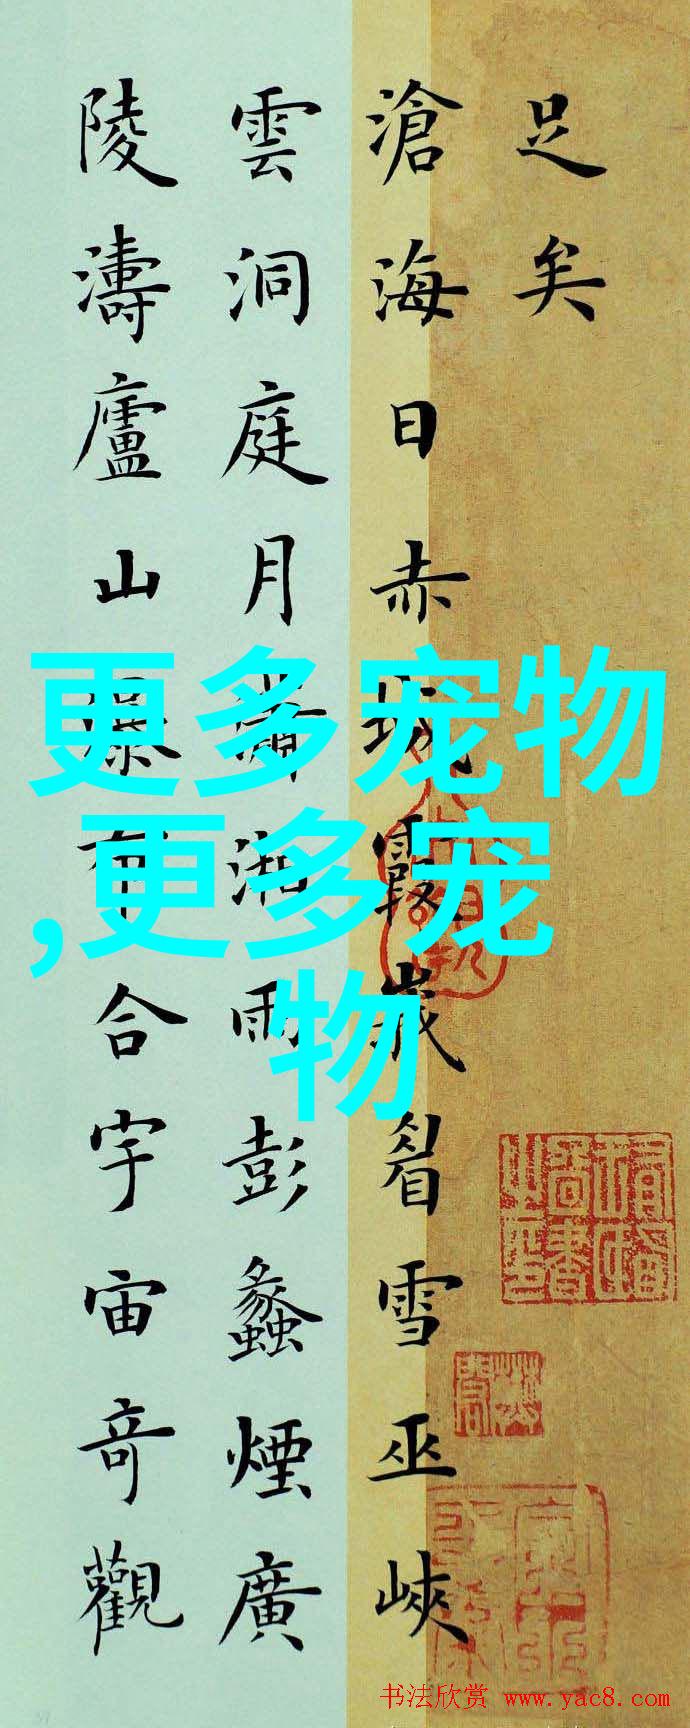 足矣
滄海日赤城霞峩眉雪巫峽
雲洞庭月瀟湘雨彭蠡煙廣
陵濤廬山瀑布合宇宙奇觀
更多宠物
,更多宠
物
书法欣赏 www.yac8.com